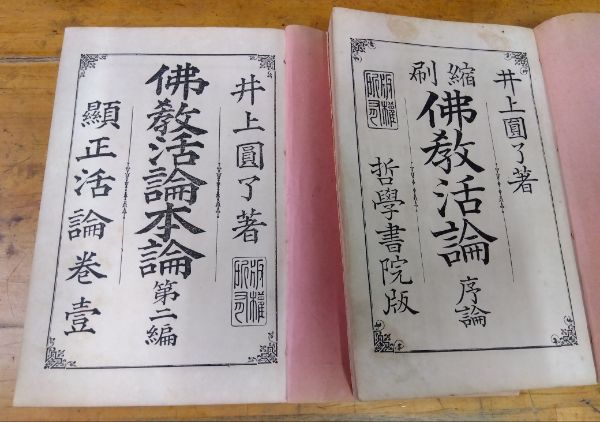 井上圓了著
縮刷
佛教活論 序論
哲學書院版
版權所有
井上圓了著
版權所有
佛教活論本論 第二編
顯正活論卷壹